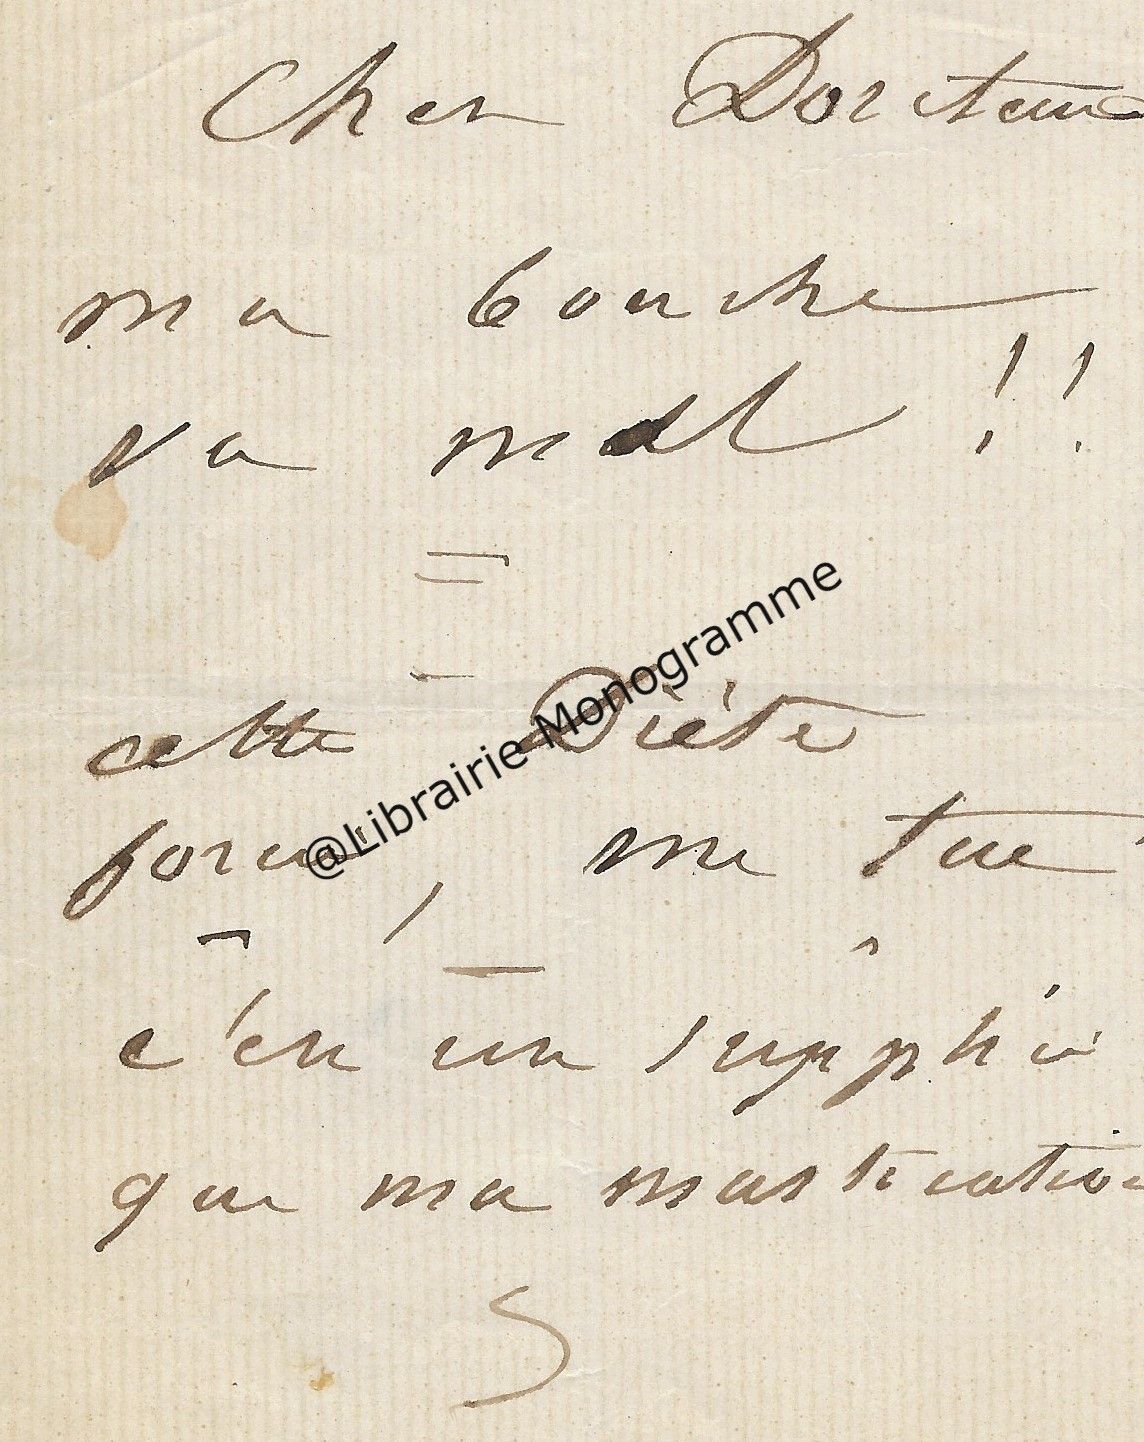 Cher Docteur
ma bouche
va mal !!
cette Diète
forcée, me tue
c'en un supplice
que ma mastication
@Librairie Monogramme